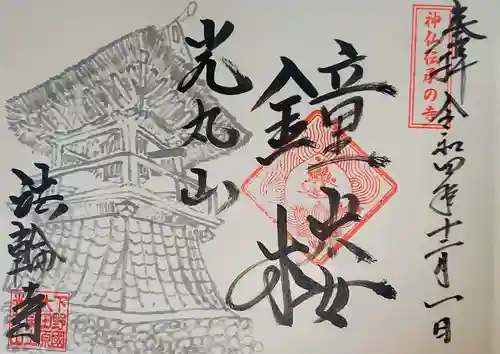 神仏伝承の寺
奉拝 令和四年十二月一日
鐘楼
光丸山
法輪寺
下野國
大田原